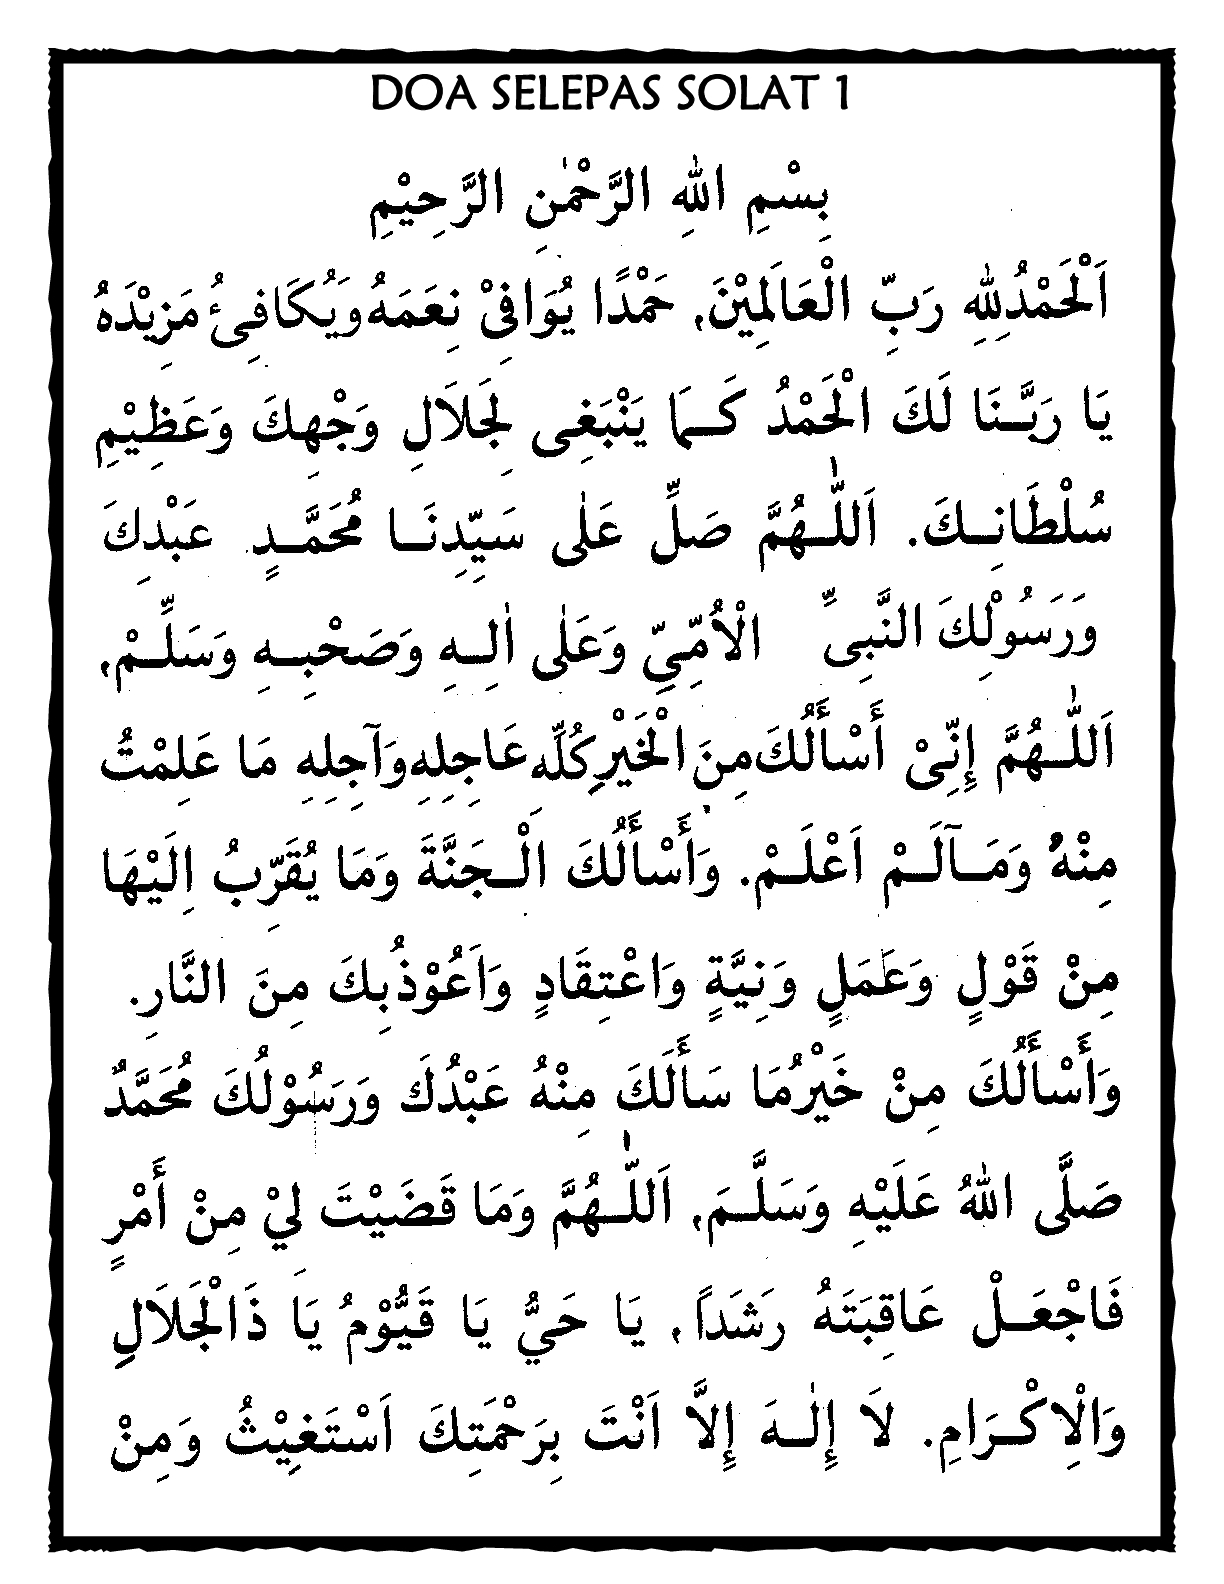 DOA SELEPAS SOLAT 1
بِسْمِ اللهِ الرَّحْمٰنِ الرَّحِيْمِ
اَلْحَمْدُلِلّٰهِ رَبِّ الْعَالَمِيْنَ, حَمْدًا يُوَافِىْ نِعَمَهُ وَيُكَافِىُٔ مَزِيْدَهُ
يَا رَبَّنَا لَكَ الْحَمْدُ كَمَا يَنْبَغِى لِجَلَالِ وَجْهِكَ وَعَظِيْمِ
سُلْطَانِكَ. اَللّٰهُمَّ صَلِّ عَلٰى سَيِّدِنَا مُحَمَّدٍ عَبْدِكَ
وَرَسُوْلِكَ النَّبِىِّ الْاُمِّيِّ وَعَلٰى اٰلِهِ وَصَحْبِهِ وَسَلِّمْ,
اَللّٰهُمَّ إِنِّىْ أَسْأَلُكَ مِنَ الْخَيْرِ كُلِّهِ عَاجِلِهِ وَآجِلِهِ مَا عَلِمْتُ
مِنْهُ وَمَآلَمْ اَعْلَمْ. وَأَسْأَلُكَ الْجَنَّةَ وَمَا يُقَرِّبُ اِلَيْهَا
مِنْ قَوْلٍ وَعَمَلٍ وَنِيَّةٍ وَاعْتِقَادٍ وَاَعُوْذُبِكَ مِنَ النَّارِ.
وَأَسْأَلُكَ مِنْ خَيْرِمَا سَأَلَكَ مِنْهُ عَبْدُكَ وَرَسُوْلُكَ مُحَمَّدٌ
صَلَّى اللهُ عَلَيْهِ وَسَلَّمَ, اَللّٰهُمَّ وَمَا قَضَيْتَ لِيْ مِنْ أَمْرٍ
فَاجْعَلْ عَاقِبَتَهُ رَشَدًا, يَا حَيُّ يَا قَيُّوْمُ يَا ذَالْجَلَالِ
وَالْاِكْرَامِ. لَا إِلٰهَ إِلَّا اَنْتَ بِرَحْمَتِكَ اَسْتَغِيْثُ وَمِنْ